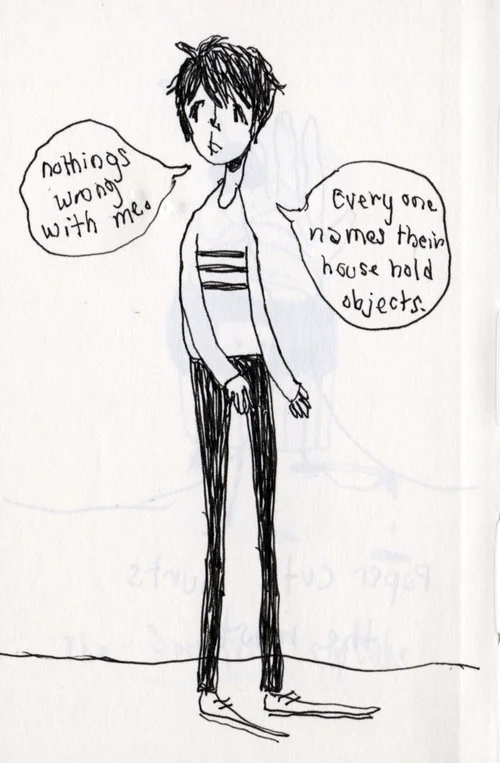 nothings
wrong
with me.
Every one
names their
house hold
objects.
Paper cut hurts